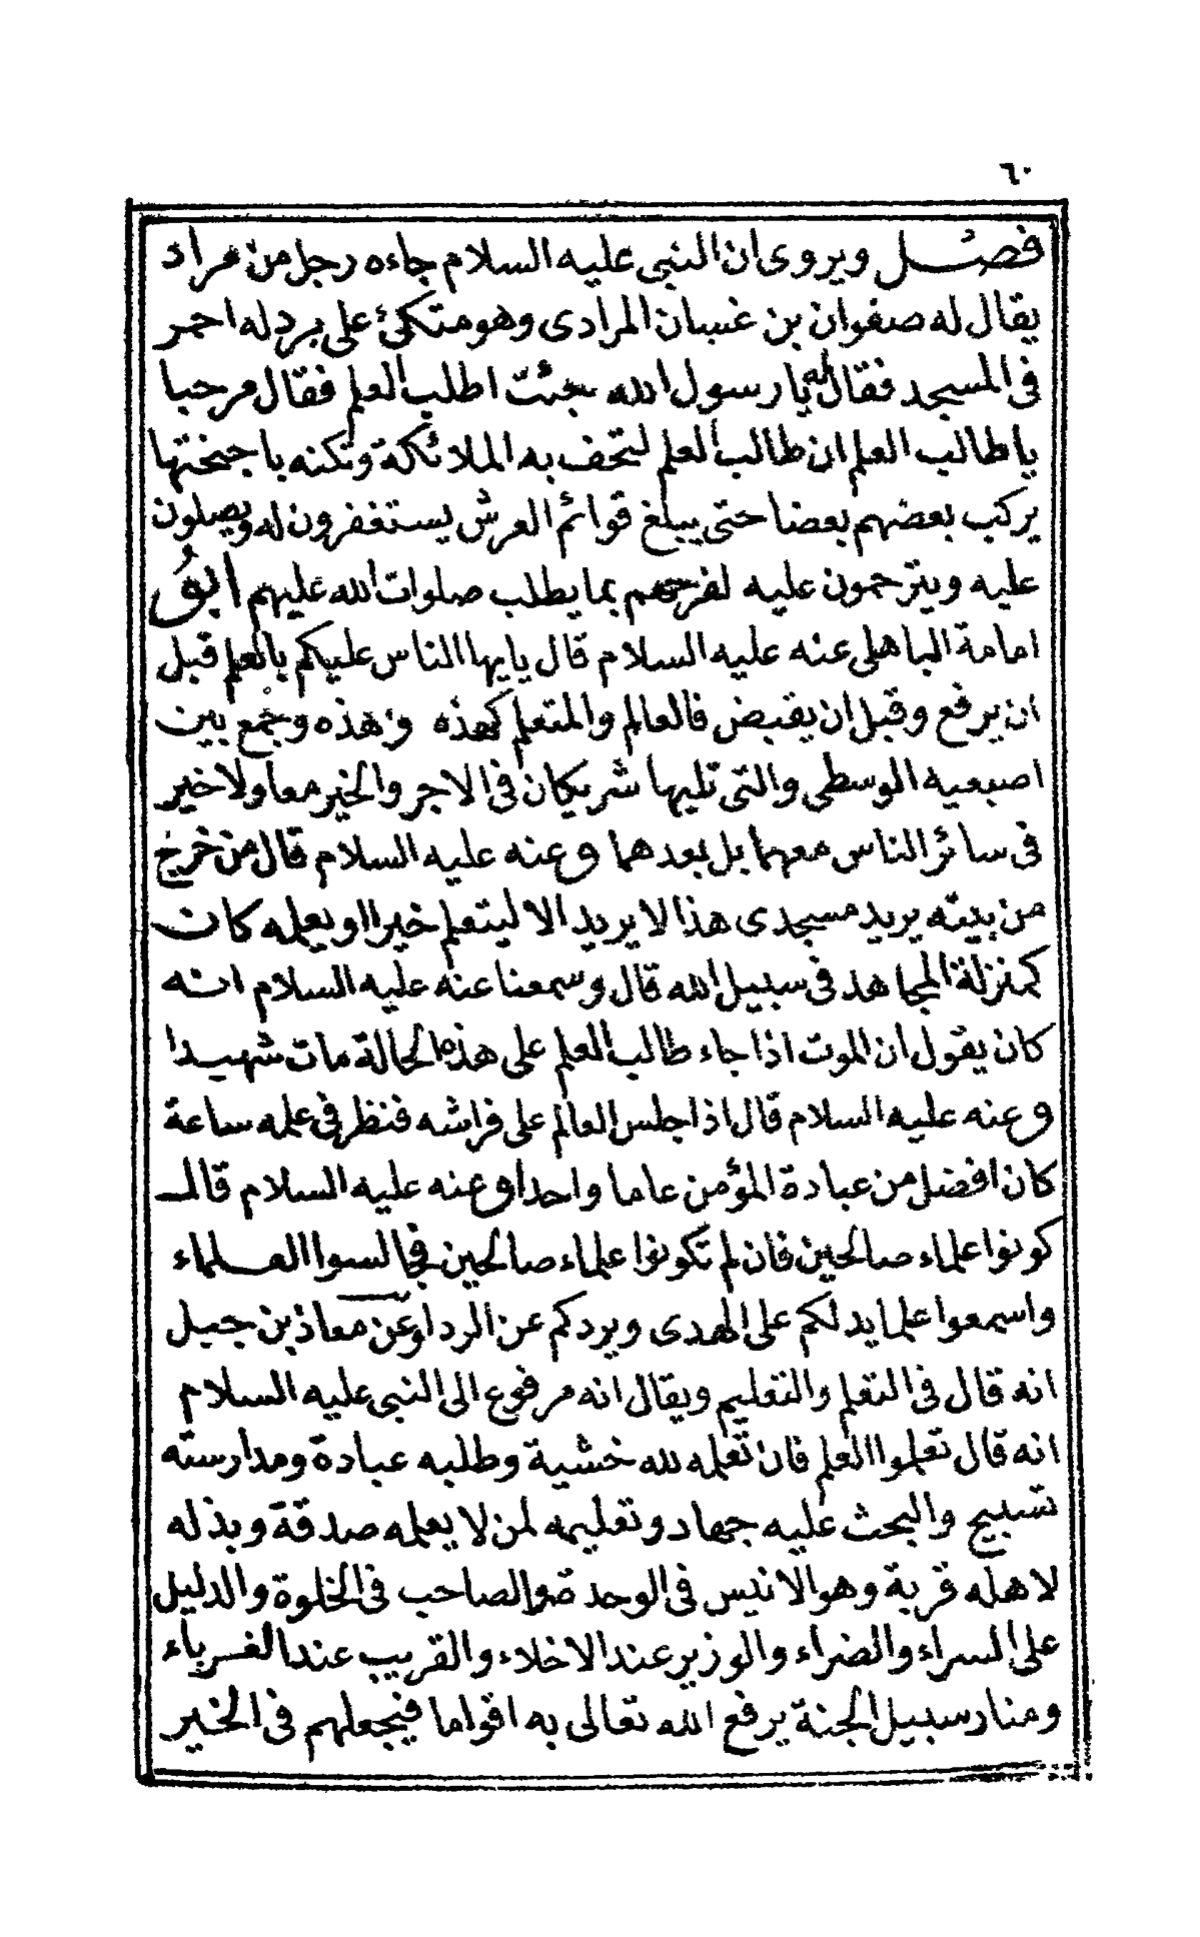 ٦٠
فصل ويروى ان النبى عليه السلام جاءه رجل من مراد
يقال له صفوان بن غسان المرادى وهو متكئ على برد له احمر
فى المسجد فقال له يا رسول الله جئت اطلب العلم فقال مرحبا
يا طالب العلم ان طالب العلم لتحف به الملائكة وتكنه باجنحتها
يركب بعضهم بعضا حتى يبلغ قوائم العرش يستغفرون له ويصلون
عليه ويترحمون عليه لفرحهم بما يطلب صلوات الله عليهم ابو
امامة الباهلى عنه عليه السلام قال يايها الناس عليكم بالعلم قبل
ان يرفع وقبل ان يقبض فالعالم والمتعلم كهذه وهذه وجمع بين
اصبعيه الوسطى والتى تليها شريكان فى الاجر والخير معا ولا خير
فى سائر الناس معهما بل بعدهما وعنه عليه السلام قال من خرج
من بيته يريد مسجدى هذا لا يريد الا ليتعلم خيرا او يعلمه كان
كمنزلة المجاهد فى سبيل الله قال وسمعنا عنه عليه السلام انه
كان يقول ان الموت اذا جاء طالب العلم على هذه الحالة مات شهيدا
وعنه عليه السلام قال اذا جلس العالم على فراشه فنظر فى علمه ساعة
كان افضل من عبادة المؤمن عاما واحدا وعنه عليه السلام قال
كونوا علماء صالحين فان لم تكونوا علماء صالحين فجالسوا العلماء
واسمعوا علما يدلكم على الهدى ويردكم عن الردا وعن معاذ بن جبل
انه قال فى التعلم والتعليم ويقال انه مرفوع الى النبى عليه السلام
انه قال تعلموا العلم فان تعلمه لله خشية وطلبه عبادة ومدارسته
تسبيح والبحث عليه جهاد وتعليمه لمن لا يعلمه صدقة وبذله
لاهله قربة وهو الانيس فى الوحدة والصاحب فى الخلوة والدليل
على السراء والضراء والوزير عند الاخلاء والقريب عند الغرباء
ومنار سبيل الجنة يرفع الله تعالى به اقواما فيجعلهم فى الخير